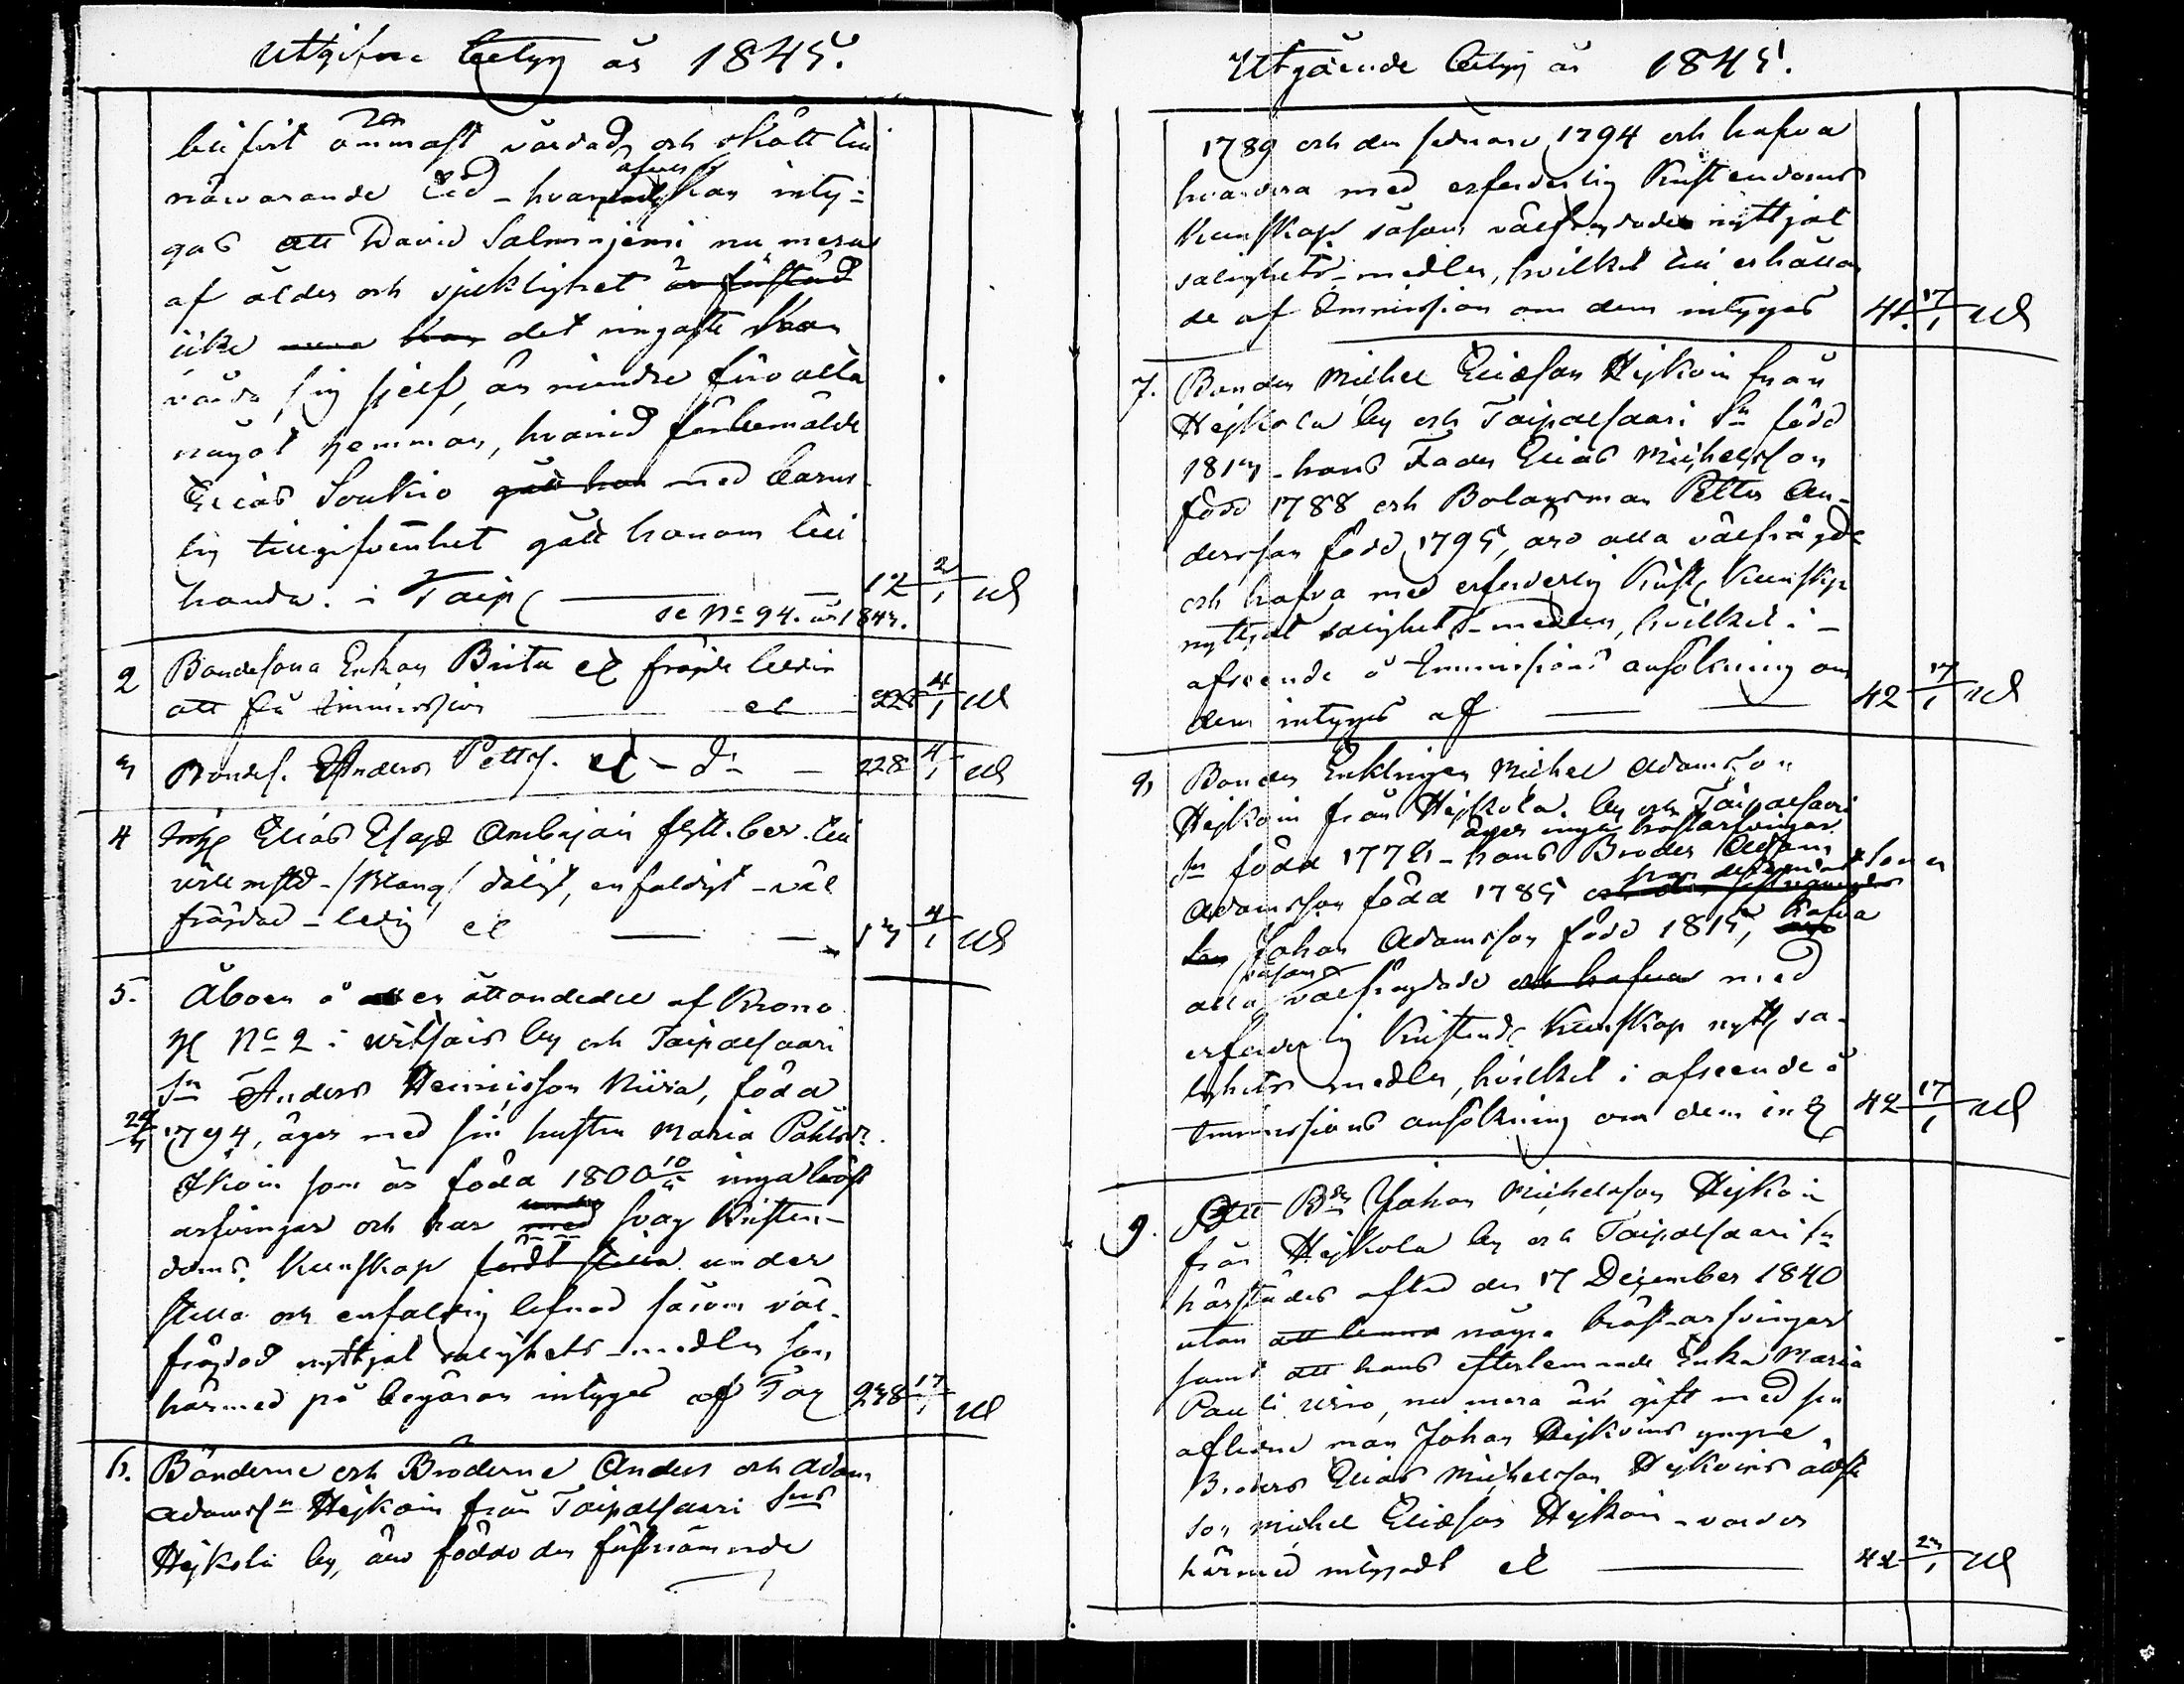 Utgifne betyg år 1845.
blifvit ömmast vårdad och skött till
närvarande tid - hvarjemte äfven kan inty-
gas att David Salmenjemi nu mera
af ålder och sjuklighet är
icke kan det ringaste kan
vårda sig sjelf, än mindre förvalta
något hemman, hvarvid förbemälde
Elias Soukio gått han med barns-
lig tillgifvenhet gått honom till
handa. i Taip 12 2/1 Ul
se No 94. år 1843.
2 Bondesona Enkan Brita el. frejde ledig
att få Immission el 228 4/1 Ul
3 Bondes. Anders Petts. el - d:o - 228 4/1 Ul
4 Elias Esajs Ambrjain flytt. bev. till
dåligt, enfaldigt - väl
frejdad - ledig el 13 4/1 Ul
5. Åboen å en åttondedel af Krono
H No 2 i by och Taipalsaari
Sn Anders Heinricsson Niira, född
1794, äger med sin hustru Maria Påhlsdr.
Ikoin som är född 1800 inga bröst
arfvingar och har med svag Kristen-
doms Kunskap fördt stilla under
stilla och enfaldig lefnad såsom väl-
frejdad nyttjat salighets-medlen som
härmed på begäran intygas af Tax 238 17/1 Ul
6. Bönderne och Bröderne Anders och Adam
Adamssn Hejkoin från Taipalsaari Sns
Hejkola by, äro födde den förstnämnde
Utgående betyg år 1845.
1789 och den sednare 1794 och hafva
hvardera med erforderlig Kristendoms
Kunskap såsom välfrejdade nyttjat
salighets-medlen, hvilket till erhållan
de af Immission om dem intygas 41. 17/1 Ul
7. Bonden Michel Eliasson Hejkoin från
Hejkola by och Taipalsaari Sn född
1813 - hans Fader Elias Michelsson
född 1788 och Bolagsman Petter An-
dersson född 1795, äro alla välfrejde
och hafva med erforderlig Krist. Kunskap
nyttjat salighets-medlen, hvilket i -
afseende å Immissions ansökning om
dem intygas af 42 17/1 Ul
8 Bonden Enklingen Michel Adamsson
Hejkoin från Hejkola by och Taipalsaari
äger inga bröstarfvingar
Sn född 1778 - hans Broder Adam
Adamsson född 1785 sonen
Johan Adamsson född 1815, hafva
alla såsom välfrejdade och hafva med
erforderlig Kristend. Kunskap nyttj sa-
lighets medlen, hvilket i afseende å
Immissions ansökning om dem int 42 17/1 Ul
9. Att Bdn Johan Michelsson Hejkoin
från Hejkola by och Taipalsaari Sn
härstädes afled den 17 December 1840
utan att lemna några bröst-arfvingar
samt att hans efterlemnade Enka Maria
Pauli nu mera är gift med sin
aflidne man Johan Hejkoins yngre
Broders Elias Michelsson Hejkoins äldste
son Michel Eliasson Hejkoin - varder
härmed intygadt el 42 23/1 Ul